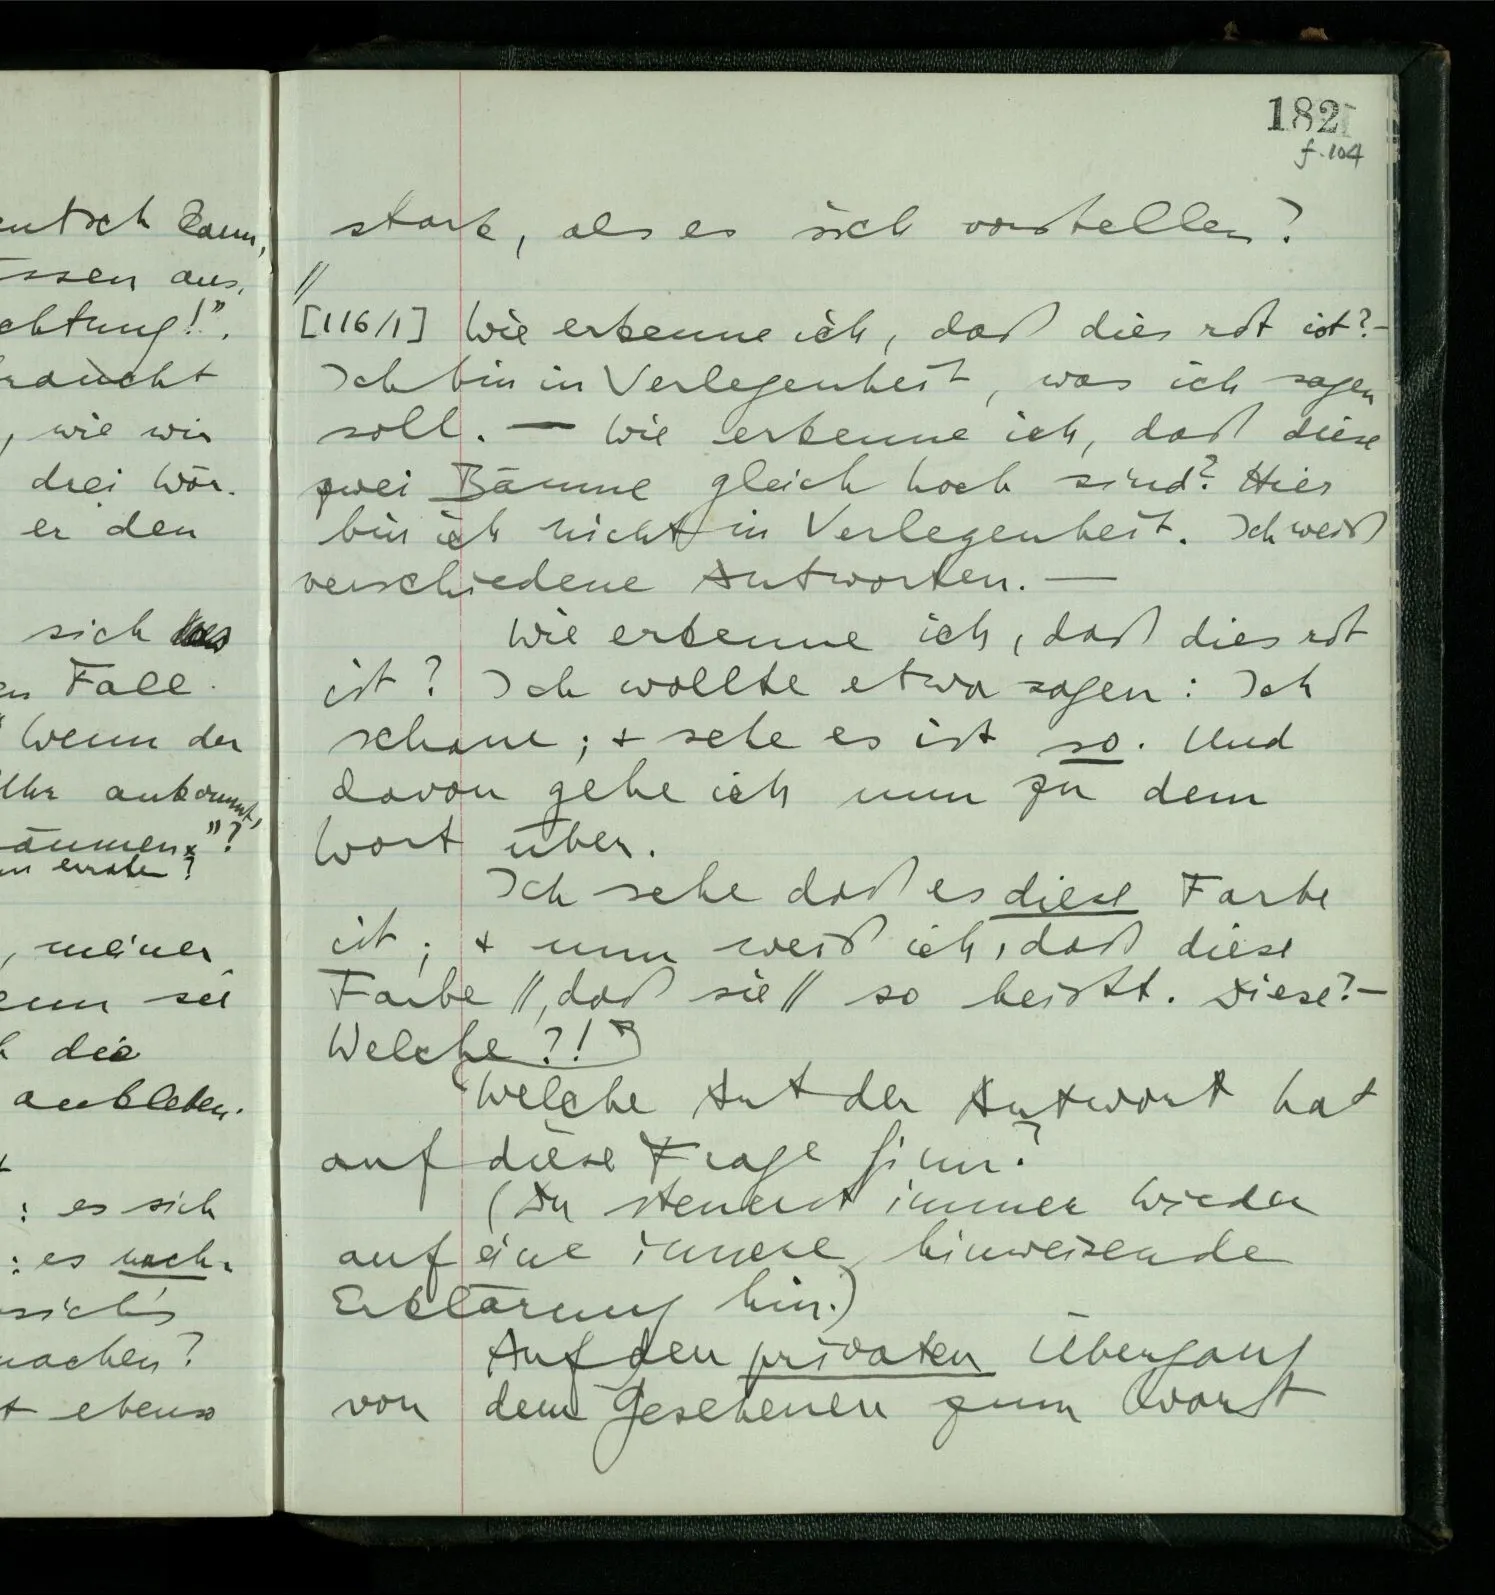 182
f. 104
stark, als es sich vorstellen?
//
[116/1] Wie erkenne ich, daß dies rot ist? –
Ich bin in Verlegenheit, was ich sagen
soll. — Wie erkenne ich, daß diese
zwei Bäume gleich hoch sind? Hier
bin ich nicht in Verlegenheit. Ich weiß
verschiedene Antworten. —
Wie erkenne ich, daß dies rot
ist? Ich wollte etwa sagen: Ich
schaue; + sehe es ist so. Und
davon gehe ich nun zu dem
Wort über.
Ich sehe daß es diese Farbe
ist; + nun weiß ich, daß diese
Farbe //, daß sie // so heißt. Diese? –
Welche?!
Welche Art der Antwort hat
auf diese Frage Sinn?
(Du steuerst immer wieder
auf eine innere hinweisende
Erklärung hin.)
Auf den privaten Übergang
von dem Gesehenen zum Wort
entsch kann,
ssen aus,
chtung!”.
raucht
, wie wir
drei Wör-
er den
sich
en Fall
Wenn der
Uhr ankommt,
äumen”?
erraten?
, meiner
enn sei
die
ankleben.
: es sich
: es nach-
sich's
machen?
t ebenso